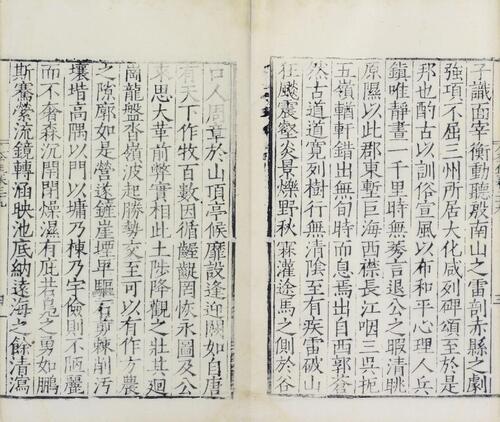 子識面宰衡動聽殷南山之雷剖赤縣之劇
強項不屈三州所居大化咸列碑頌至於是
邦也酌古以訓俗宣風以布和平心理人兵
鎮唯靜畫一千里時無莠言退公之暇清眺
原隰以此郡東塹巨海西襟長江咽三吳扼
五嶺輶軒錯出無旬時而息焉出自西郭蒼
然古道道寬列樹行無清陰至有疾雷破山
狂飈震壑炎景爍野秋霖灌途馬之側於谷
口人周章於山頂亭候靡設逢迎闕如自唐
有天下作牧百數因循齷齪罔恢永圖及公
來思大革前弊實相此土陟降觀之壯其迴
崗龍盤沓嶺波起勝勢交至可以有作方農
之隙廓如是營遂鏟崖堙卑驅石剪棘削汚
壤堦高隅以門以墉乃棟乃宇儉則不陋麗
而不奢森沉閈閎燥濕有庇若鼇之勇如鵬
斯騫縈流鏡轉涵映池底納遠海之餘清瀉